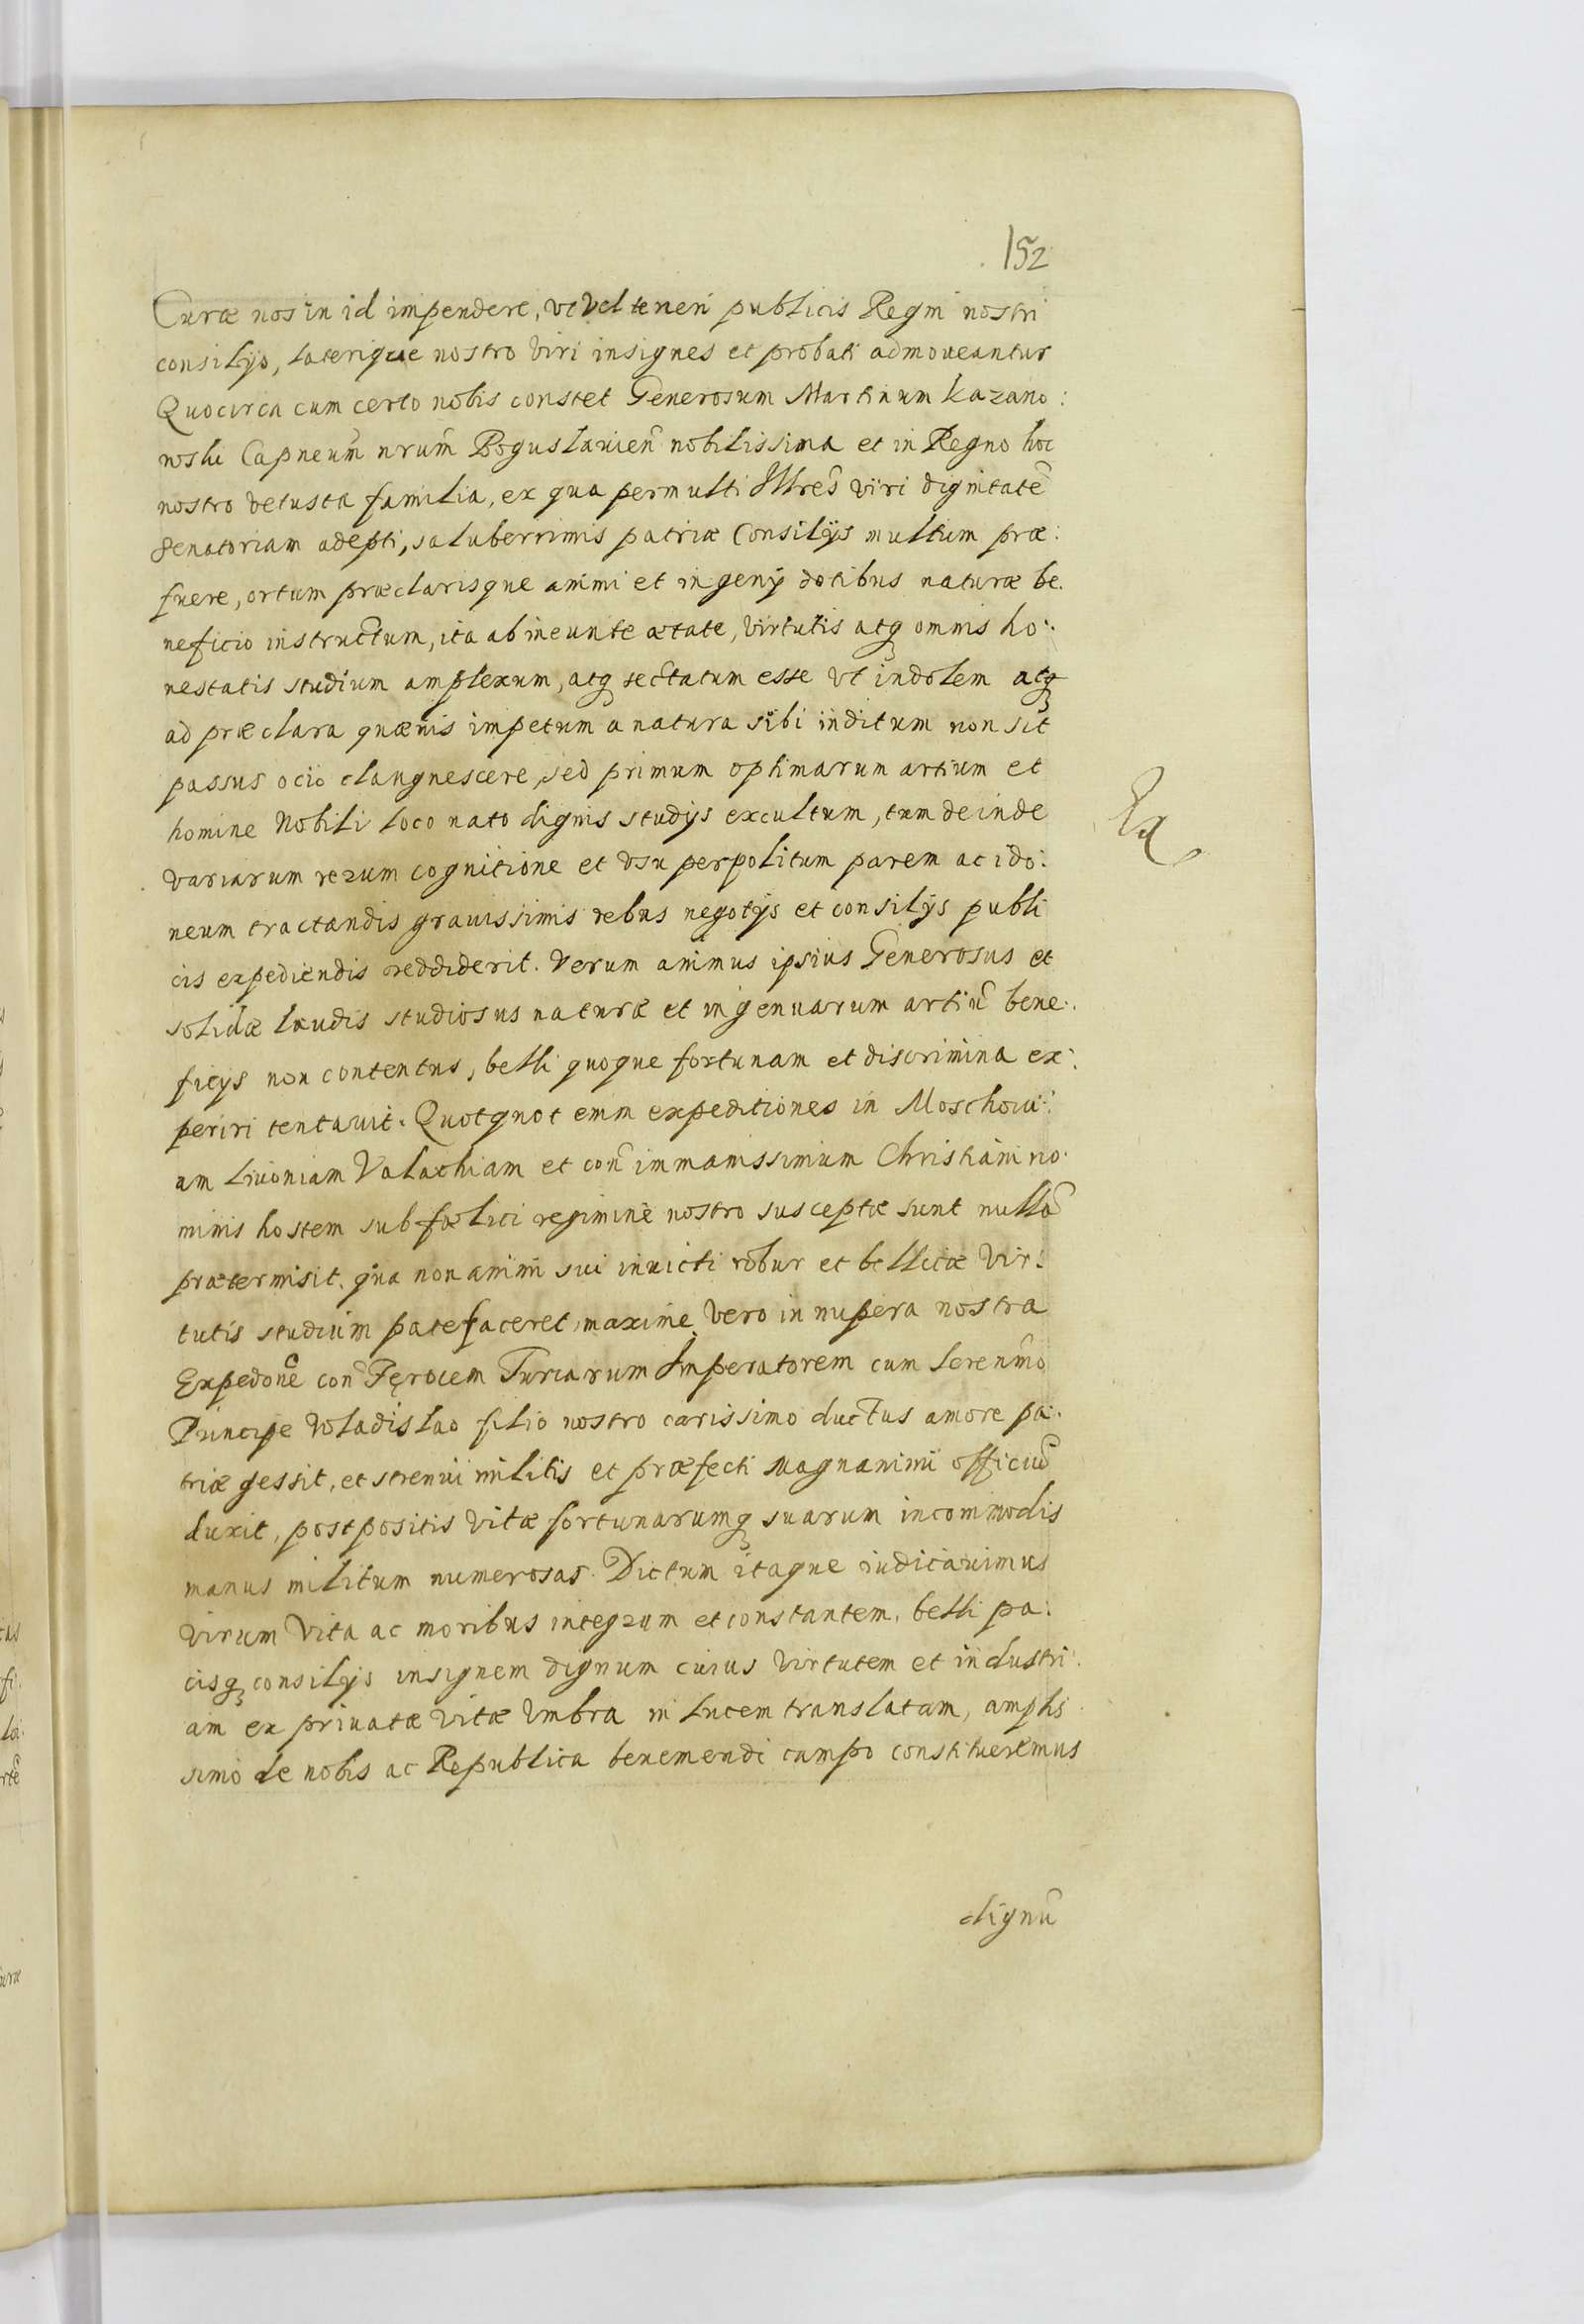 152
Curæ nos in id impendere, vt vel teneri publicis Regni nostri
consilijs, laterique nostro viri insignes et probati admoueantur
Quocirca cum certo nobis constet Generosum Martinum Kazano:
noski Capneum̃ nrum̃ Boguslauien̄ nobilissima et in Regno hoc
nostro vetusta familia, ex qua permulti Illres̃ viri dignitatẽ
senatoriam adepti, saluberrimis patriæ Consilijs multum præ:
fuere, ortum præclarisque animi et ingenij dotibus naturæ be.
neficio instructum, ita ab ineunte ætate, virtutis atq₃ omnis ho:
nestatis studium amplexum, atq₃ sectatum esse vt indolem atq₃
ad præclara quæuis impetum a natura sibi inditum non sit
passus ocio elangnescere, sed primum optimarum artium et
homine Nobili loco nato dignis studijs excultum, tum deinde
variarum rerum cognitione et vsu perpolitum parem ac ido:
neum tractandis grauissimis rebus negotijs et consilijs publi
cis expediendis reddiderit. Verum animus ipsius Generosus et
solidæ laudis studiosus naturæ et ingenuarum artiũ bene:
ficijs non contentus, belli quoque fortunam et discrimina ex:
periri tentauit. Quotquot enim expeditiones in Moschoui:
am Liuoniam Valachiam et con̄ immanissimum Christiani no:
minis hostem sub fœlici regimine nostro susceptæ sunt nullã
prætermisit. qua non animi sui inuicti robur et bellicæ vir:
tutis studium patefaceret, maxime vero in nupera nostra
Expedonẽ con̄ Ferocem Turcarum Imperatorem cum Seren̄mo
Principe Wladislao filio nostro carissimo ductus amore pa:
triæ gessit, et strenui militis et præfecti magnanimi officiũ
duxit, postpositis vitæ fortunarumq₃ suarum incommodis
manus militum numerosas. Dictum itaque iudicauimus
virum vita ac moribus integrum et constantem, belli pa:
cisq₃ consilijs insignem dignum cuius virtutem et industri:
am ex priuatæ vitæ vmbra in lucem translatam, amplis
simo de nobis ac Republica benemerendi campo constitueremus
dignũ